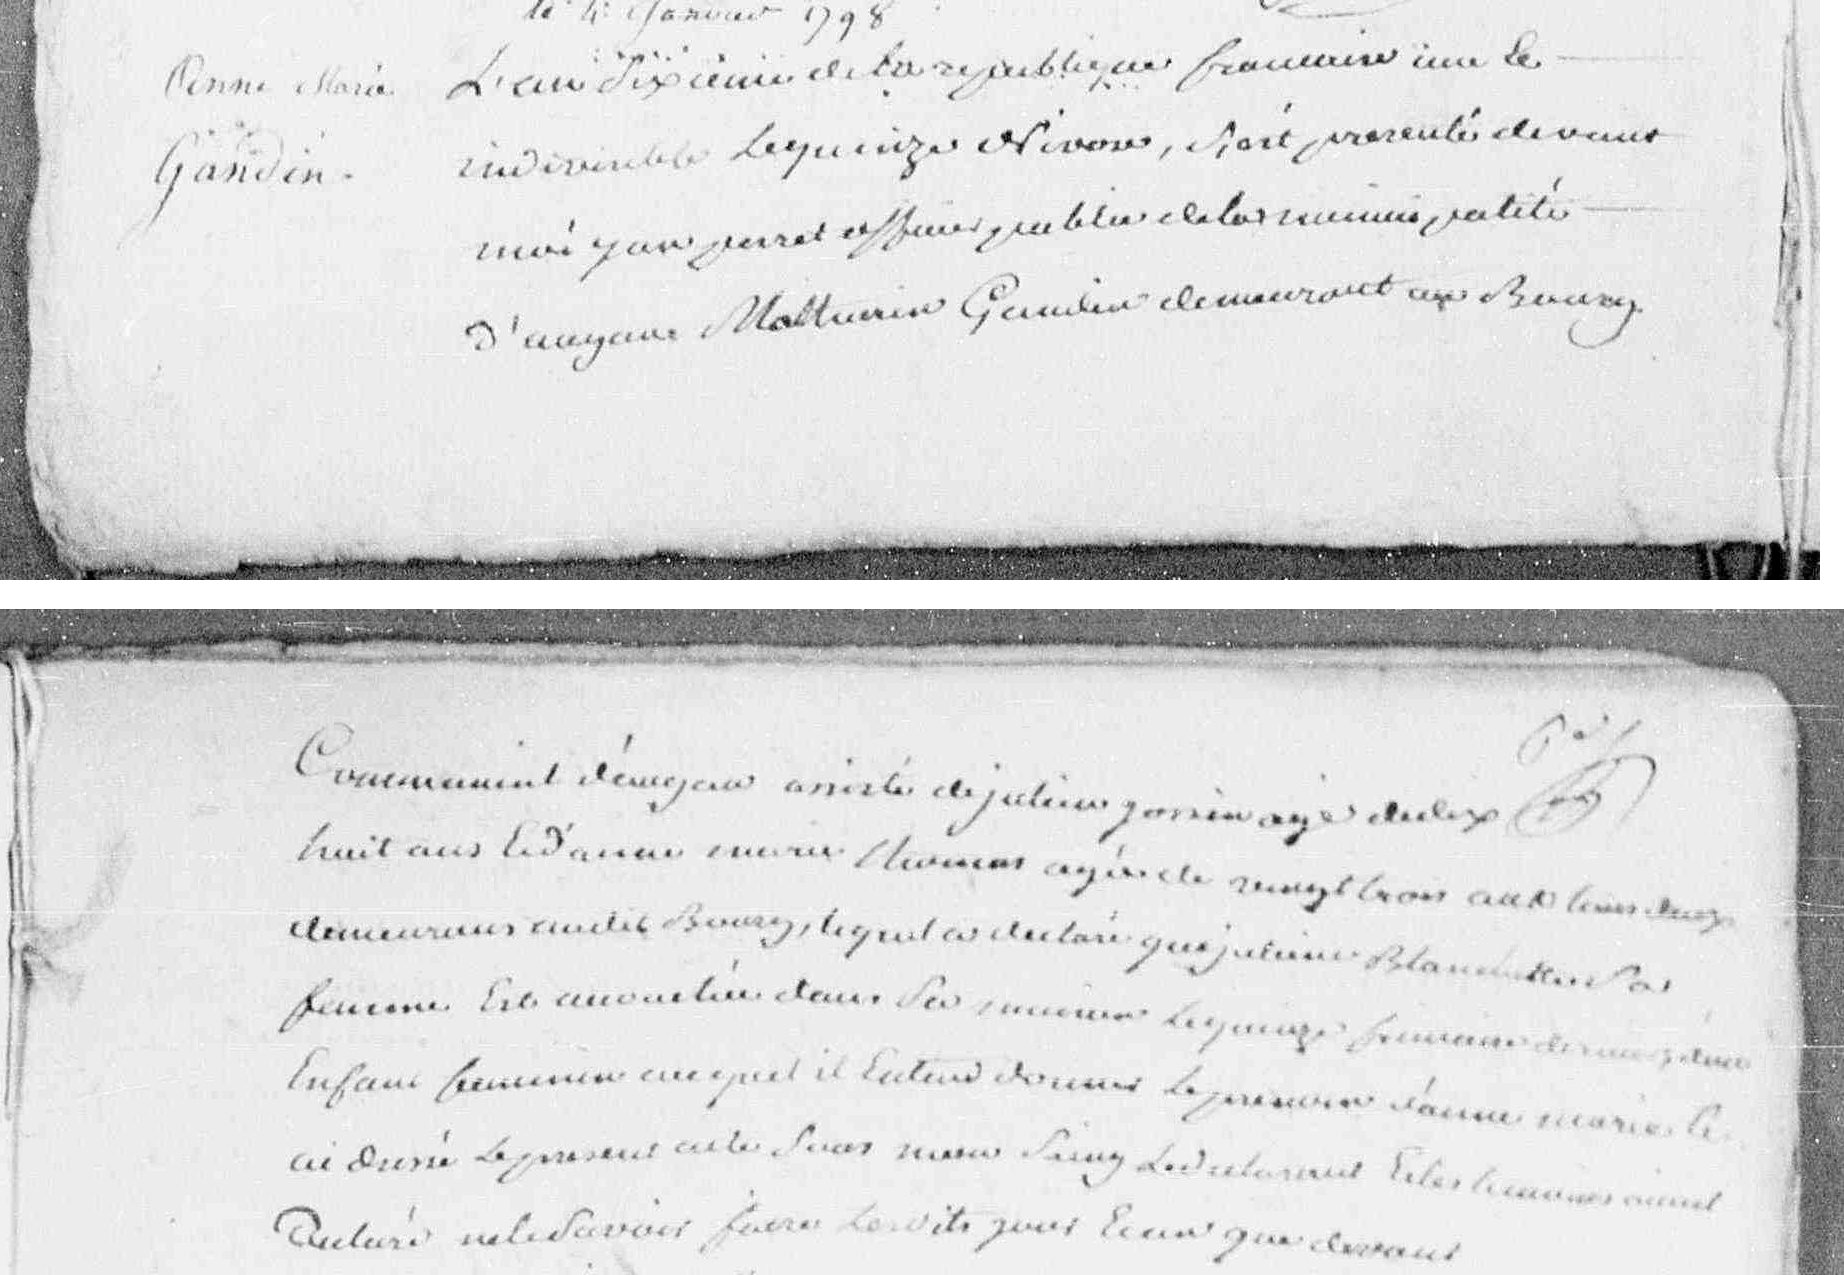 le 4 Janvier 1798
Anne Marie
Gandin.
L'an Sixieme de la republique francaise une Et
indivisible Lequinze Nivose, S'est presenté devant
moi yan perret officier public dela municipalité
D'augane Mathurin Gandin demeurant au Bourg
Communint d'augan assisté dejulien gossin agé dedix
huit ans Et D'anne marie thomas agée de vingt trois ans tous deux
demeurans audit Bourg, lequel a declaré que julienne Sa
femme Est accouchée dans Sa maison Lequinze frimaire dernier d'un
Enfant feminin auquel il Entend donner Le prenom d'anne marie Et
ai dressé Le present acte Sous mon Seing Le declarant Et les temoins aiant
Declaré nele Savoir faire Lesdits jour Et an que devant